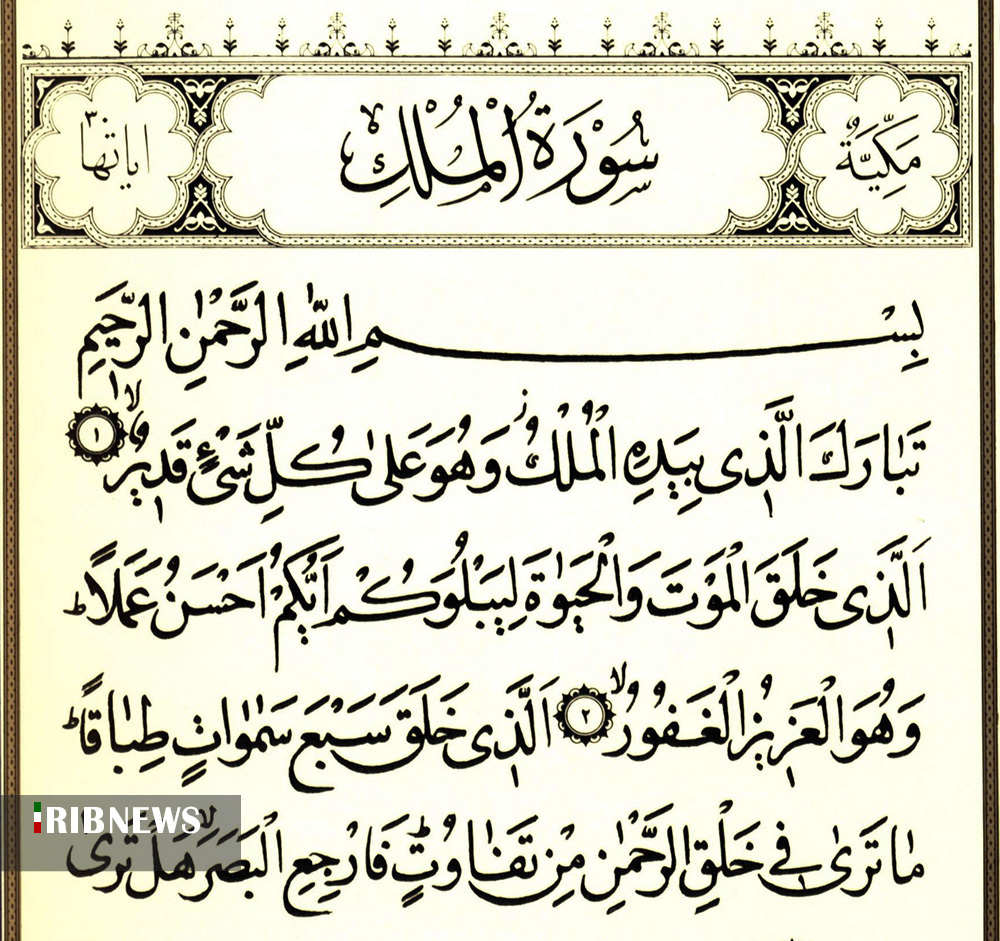 مَكِّيَّةٌ
سُوْرَةُ الْمُلْكِ
اياتها ٣٠
بِسْمِ اللّٰهِ الرَّحْمٰنِ الرَّحٖيمِ
تَبَارَكَ الَّذٖى بِيَدِهِ الْمُلْكُ ز وَهُوَ عَلٰى كُلِّ شَىْءٍ قَدٖيرٌ ۙ ١
اَلَّذٖى خَلَقَ الْمَوْتَ وَالْحَيٰوةَ لِيَبْلُوَكُمْ اَيُّكُمْ اَحْسَنُ عَمَلًا ط
وَهُوَ الْعَزٖيزُ الْغَفُورُ ۙ ٢ اَلَّذٖى خَلَقَ سَبْعَ سَمٰوَاتٍ طِبَاقًا ط
مَا تَرٰى فٖى خَلْقِ الرَّحْمٰنِ مِنْ تَفَاوُتٍ ط فَارْجِعِ الْبَصَرَ ۙ هَلْ تَرٰى
IRIBNEWS